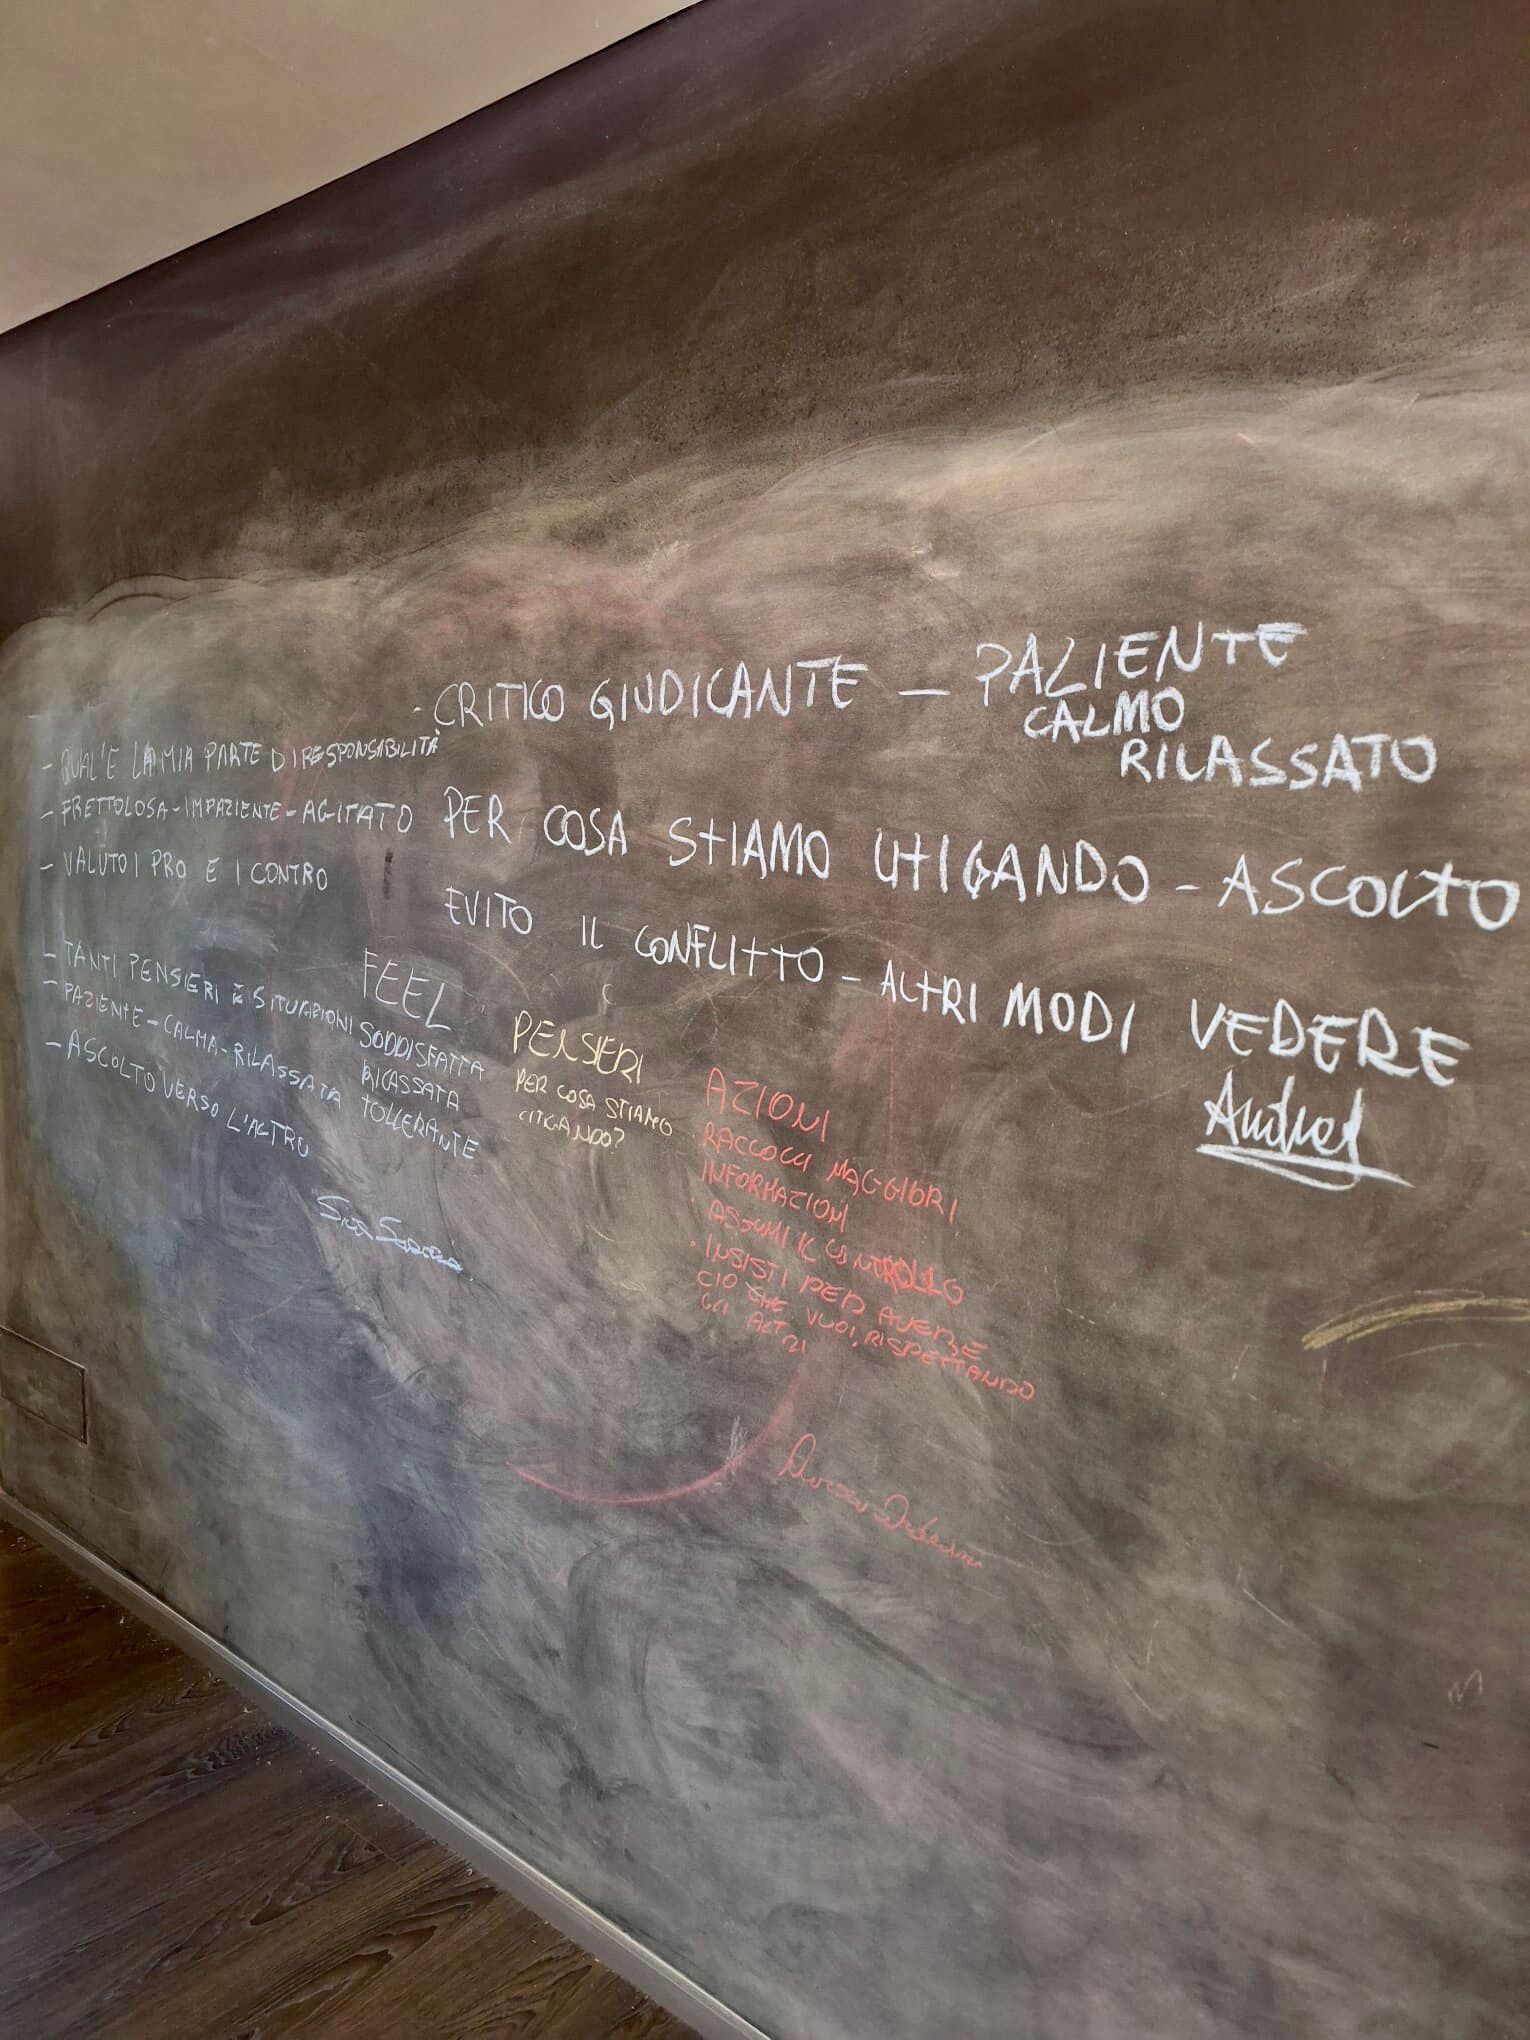 - QUAL'E LA MIA PARTE DI RESPONSABILITÀ
- FRETTOLOSA - IMPAZIENTE - AGITATO
- VALUTO I PRO E I CONTRO
- TANTI PENSIERI E SITUAZIONI
- PAZIENTE - CALMA - RILASSATA
- ASCOLTO VERSO L'ALTRO
FEEL
SODDISFATTA
RILASSATA
TOLLERANTE
· CRITICO GIUDICANTE - PAZIENTE
CALMO
RILASSATO
PER COSA STIAMO LITIGANDO - ASCOLTO
EVITO IL CONFLITTO - ALTRI MODI VEDERE
PENSIERI
PER COSA STIAMO
LITIGANDO?
AZIONI
· RACCOGLI MAGGIORI
INFORMAZIONI
· ASSUMI IL CONTROLLO
· INSISTI PER AVERE
CIO CHE VUOI, RISPETTANDO
GLI ALTRI